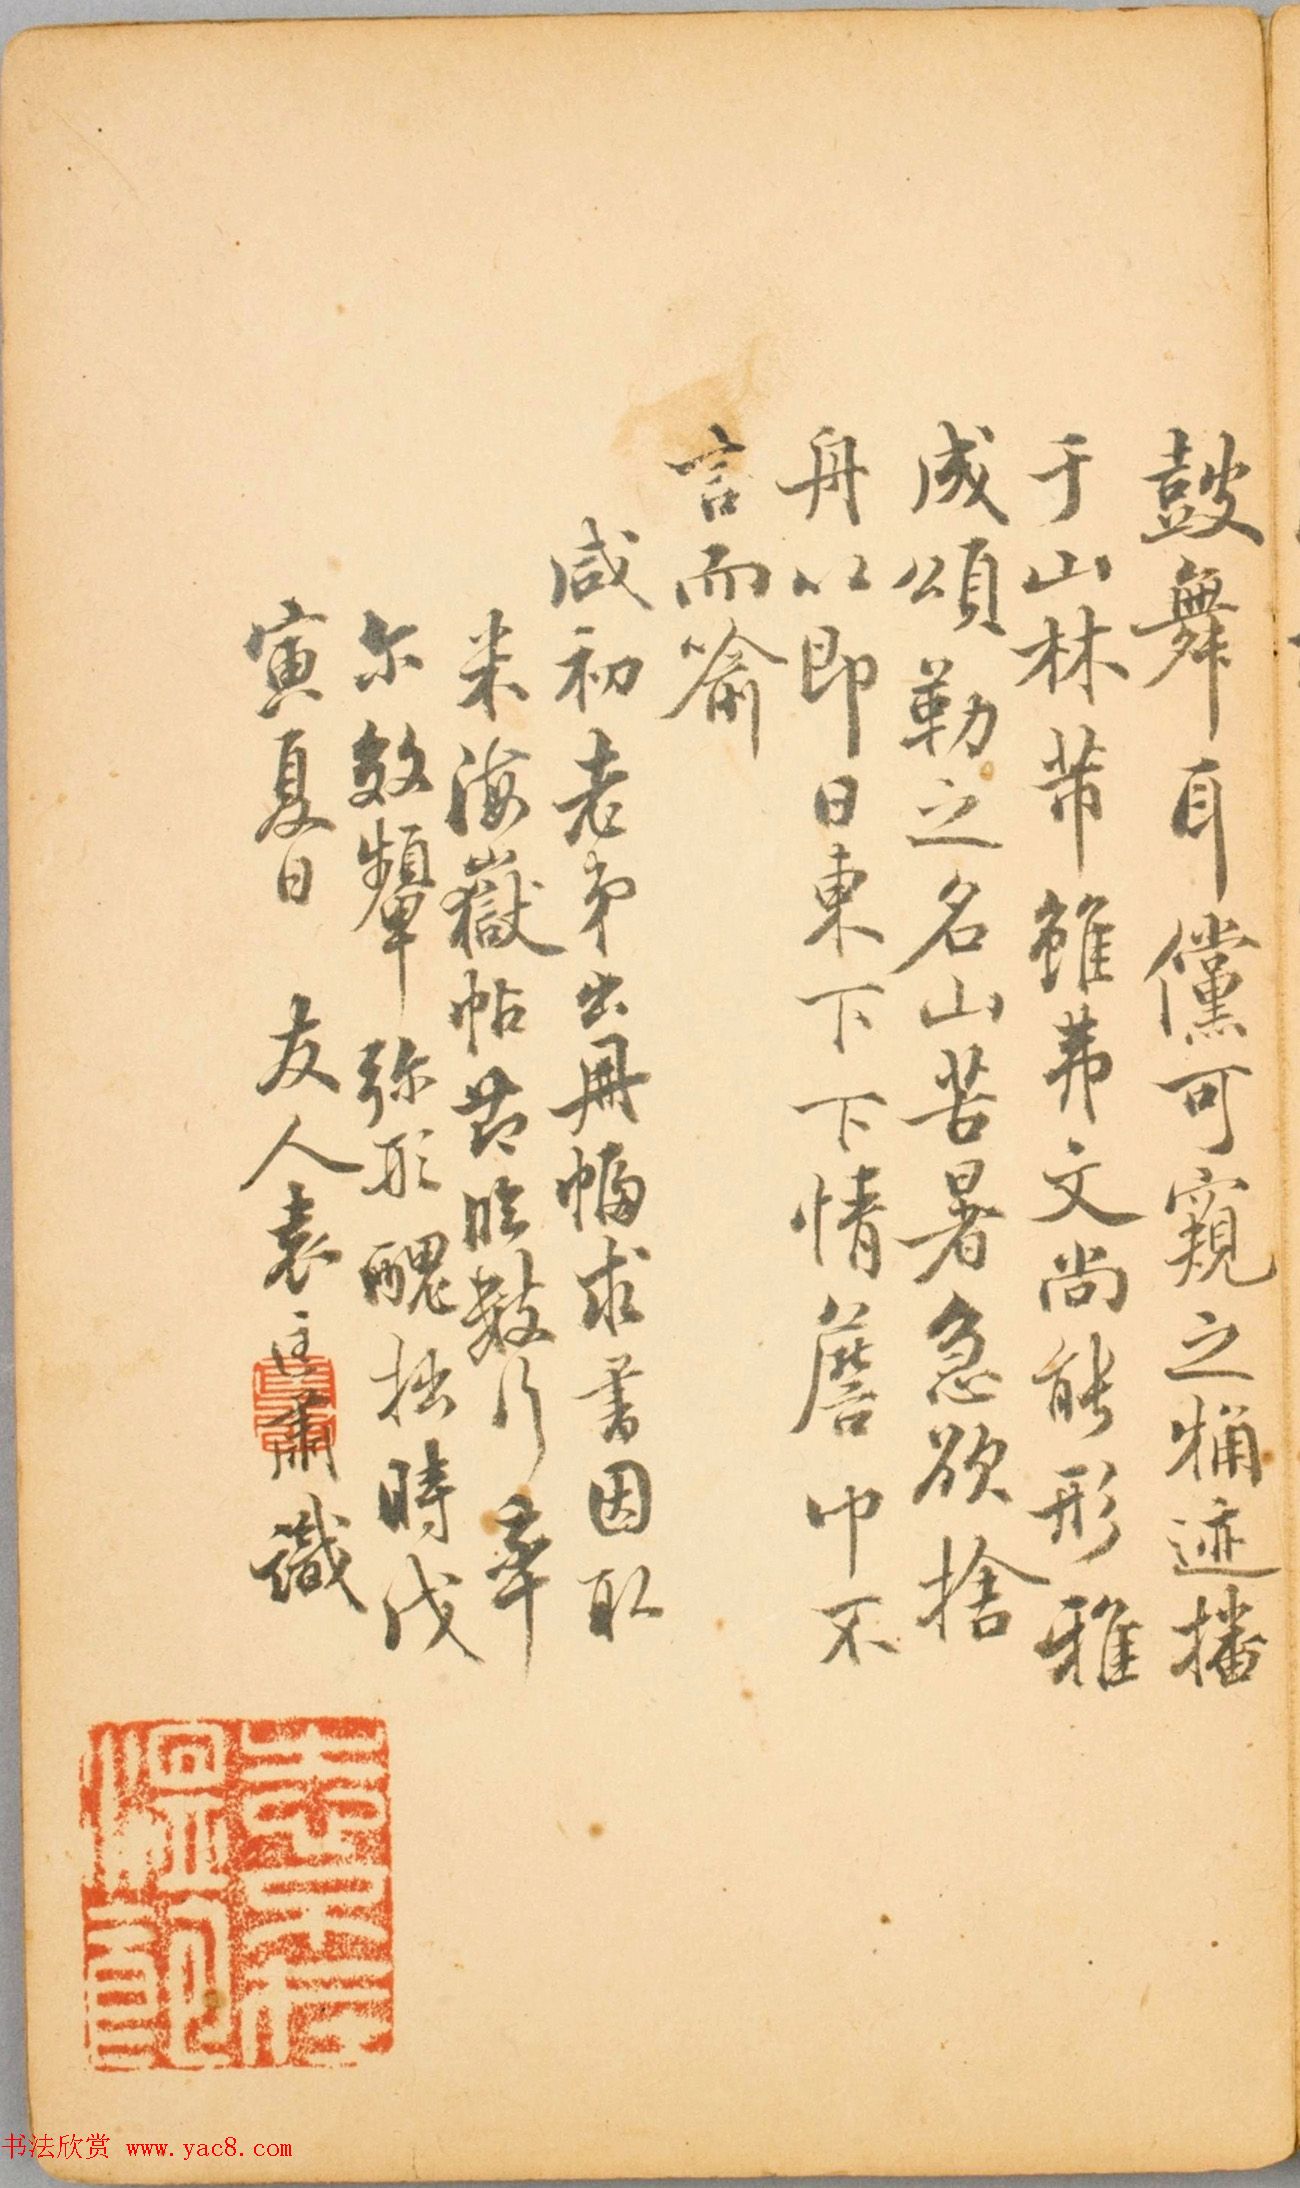 鼓舞耳儻可窺之桷迹播
于山林芾雖茀文尚能形雅
成頌勒之名山苦暑急欲捨
舟以即日東下下情詹巾不
言而喻
咸初老弟出冊幅求書因取
米海嶽帖節臨數行率
尔效顰弥形醜拙時戊
寅夏日 友人袁匡肅識
书法欣赏 www.yac8.com